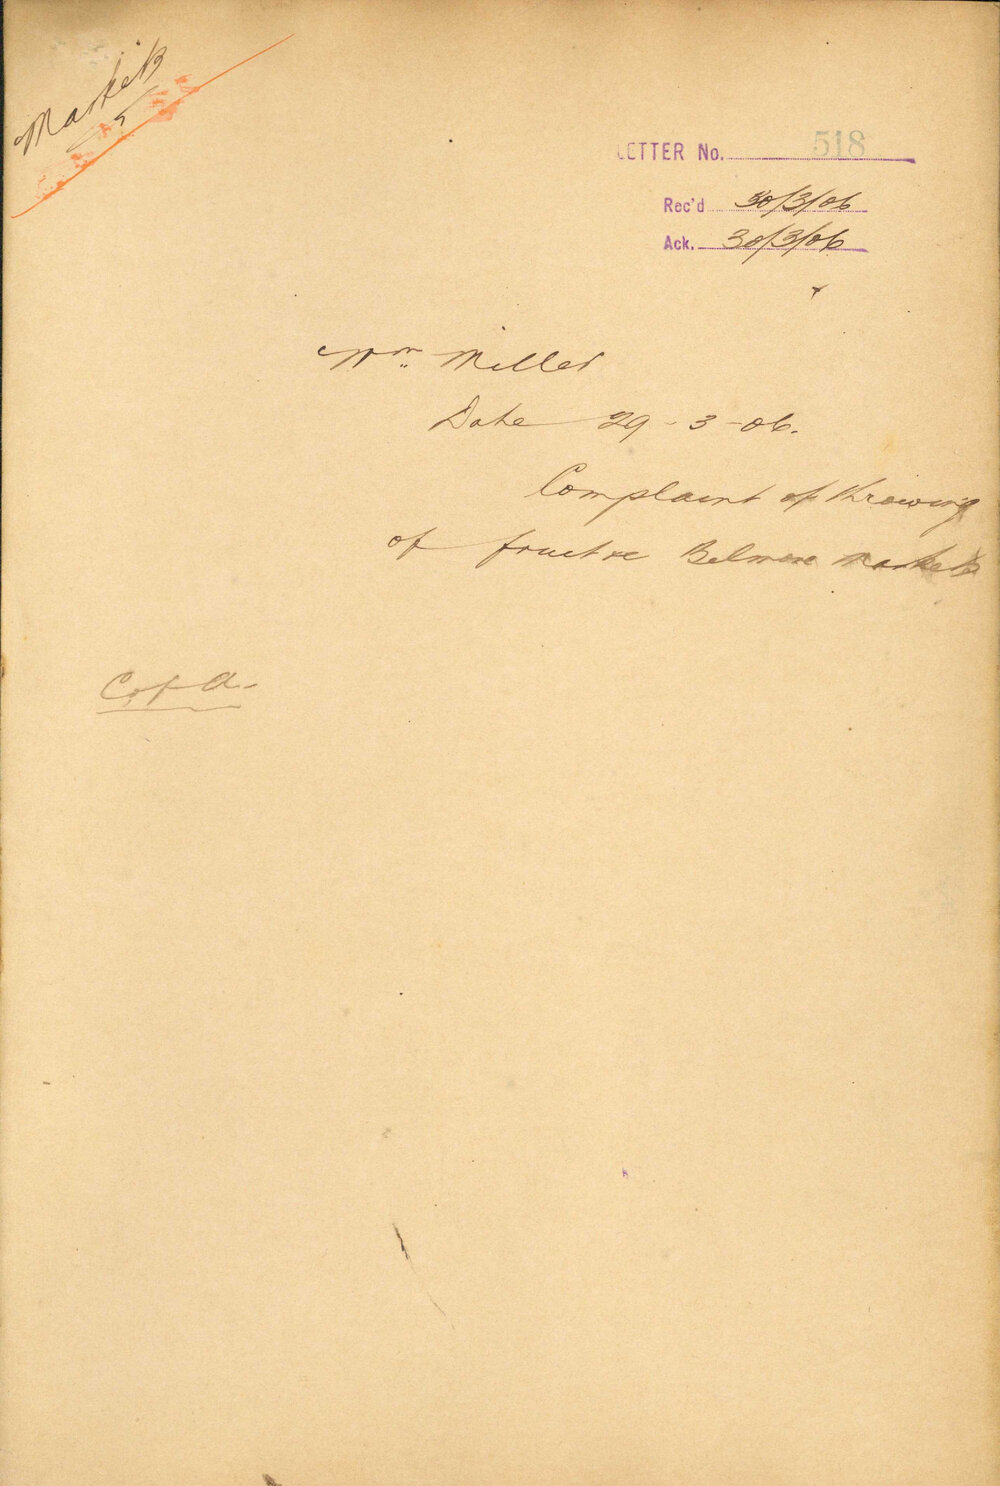 Markets
5
LETTER No. 518
Rec'd 30/3/06
Ack. 30/3/06
Wm. Miller
Date 29-3-06.
Complaint of throwing
of fruit re Belmore Markets
C of A.